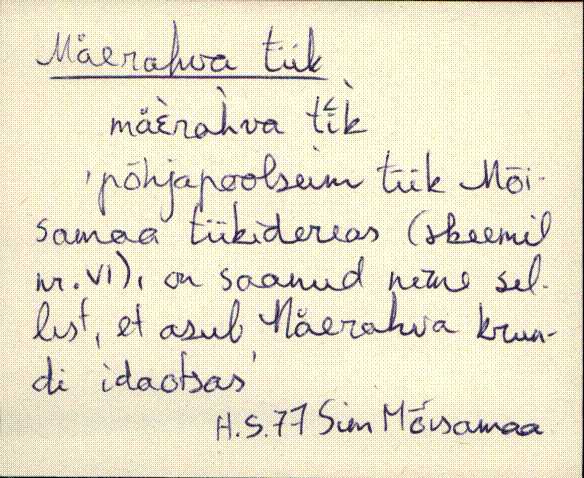 Mäerahva tiik
mäèrahva tī̀k
'põhjapoolseim tiik Mõi-
samaa tiikidereas (skeemil
nr. VI), on saanud nime sel-
list, et asub Mäerahva krun-
di idaotsas'
H.S.77 Sim Mõisamaa